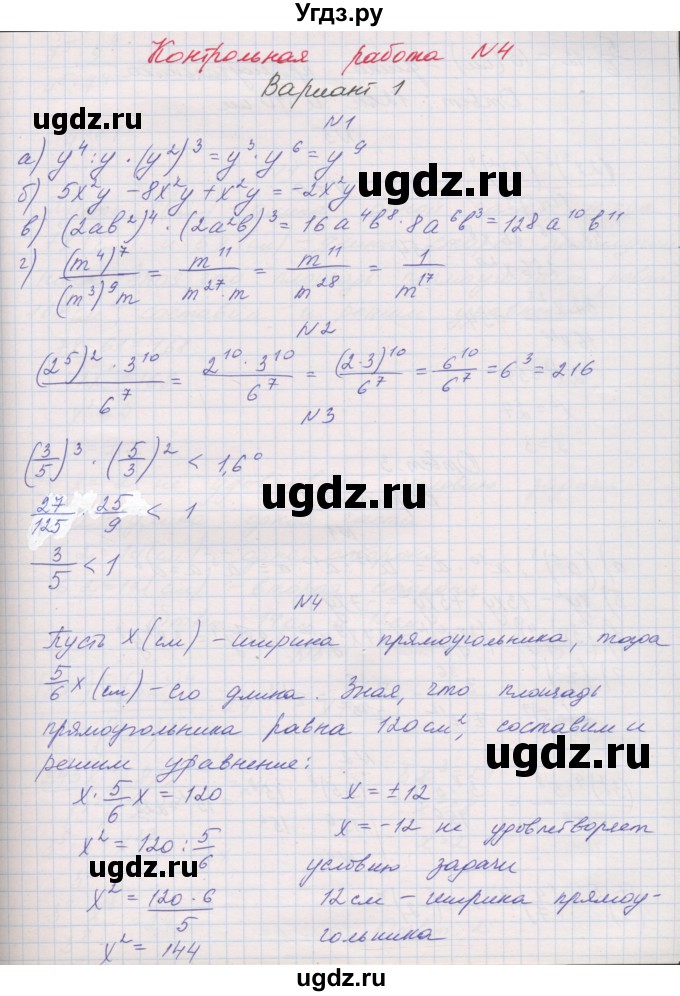 Угдз.ру
Контрольная работа №4
Вариант 1
№1
а) y⁴ : y · (y²)³ = y³ · y⁶ = y⁹
б) 5x²y - 8x²y + x²y = -2x²y
в) (2ab²)⁴ · (2a²b)³ = 16a⁴b⁸ · 8a⁶b³ = 128a¹⁰b¹¹
г) (m⁴)⁷/((m³)⁹m) = m¹¹/(m²⁷·m) = m¹¹/m²⁸ = 1/m¹⁷
№2
((2⁵)² · 3¹⁰)/6⁷ = (2¹⁰ · 3¹⁰)/6⁷ = (2·3)¹⁰/6⁷ = 6¹⁰/6⁷ = 6³ = 216
№3
(3/5)³ · (5/3)² < 1,6⁰
27/125 · 25/9 < 1
3/5 < 1
№4
Пусть x (см) – ширина прямоугольника, тогда
5/6 x (см) – его длина. Зная, что площадь
прямоугольника равна 120 см², составим и
решим уравнение:
x · 5/6 x = 120
x² = 120 : 5/6
x² = (120 · 6)/5
x² = 144
x = ±12
x = -12 не удовлетворяет
условию задачи
12 см – ширина прямоу-
гольника
ugdz.ru
ugdz.ru
ugdz.ru
ugdz.ru
ugdz.ru
ugdz.ru
ugdz.ru
ugdz.ru